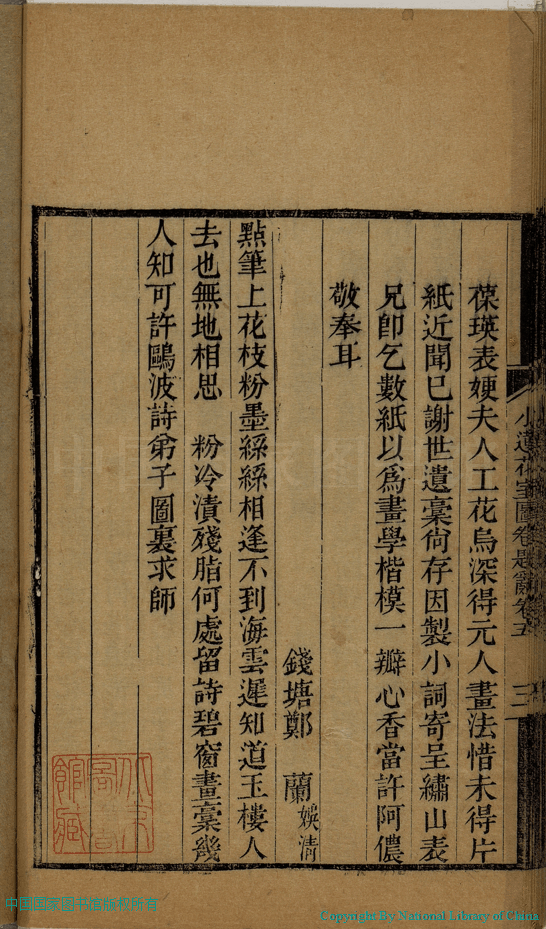 葆瑛表㛐夫人工花鳥深得元人畫法惜未得片
紙近聞已謝世遺稾尙存因製小詞寄呈繡山表
兄卽乞數紙以爲畫學楷模一瓣心香當許阿儂
敬奉耳
錢塘鄭 蘭娛清
點筆上花枝粉墨絲絲相逢不到海雲遲知道玉樓人
去也無地相思 粉冷漬殘脂何處留詩碧窗畫稾幾
人知可許鷗波詩弟子圖裏求師
圖卷題辭卷五
三
中国国家图书馆
Copyright By National Library of China